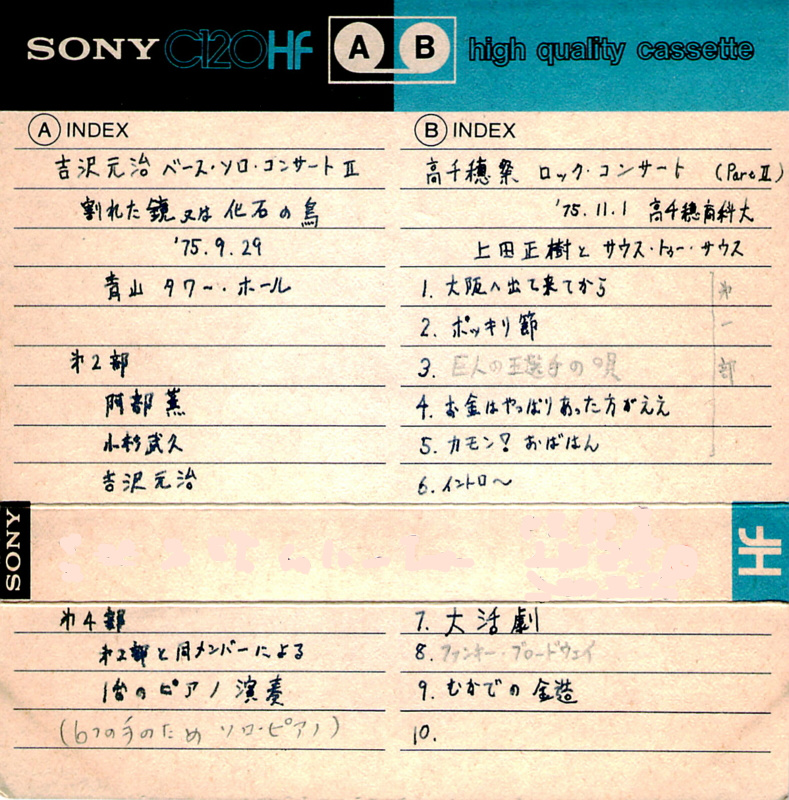 SONY C120HF A B high quality cassette
A INDEX
吉沢元治 ベース・ソロ・コンサート II
割れた鏡 又は 化石の鳥
'75.9.29
青山 タワー・ホール
第2部
阿部薫
小杉武久
吉沢元治
B INDEX
高千穂祭 ロック・コンサート (Part II)
'75.11.1 高千穂商科大
上田正樹と サウス・トゥー・サウス
1. 大阪へ出て来てから
2. ポッキリ節
3. 巨人の王選手の唄
4. お金はやっぱりあった方がええ
5. カモン! おばはん
6. イントロ〜
第一部
SONY
HF
第4部
第2部と同メンバーによる
1台のピアノ演奏
(6つの手のため ソロ・ピアノ)
7. 大活劇
8. ファンキー・ブロードウェイ
9. むかでの錬金
10.